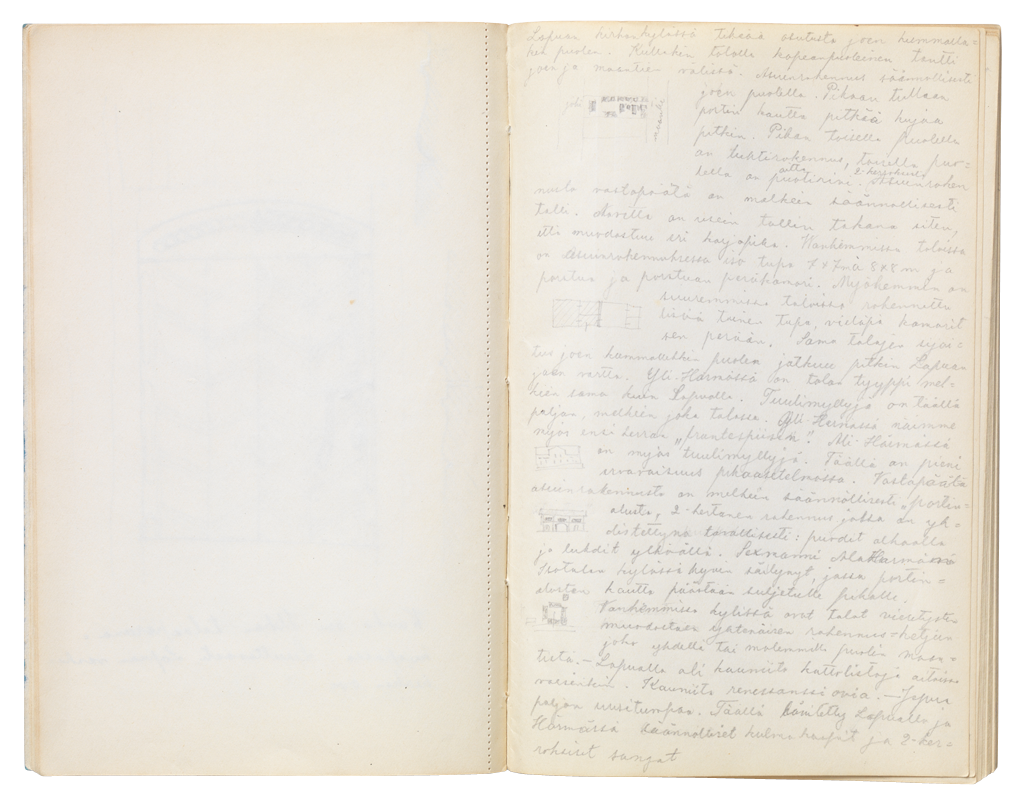 Lapuan kirkonkylässä tiheää asutusta joen kummalla-
kin puolen. Kullakin talolla kapea-puoleinen tontti
joen ja maantien välissä. Asuinrakennus säännöllisesti
joen puolella. Pihaan tullaan
portin kautta pitkää kujaa
pitkin. Pihan toisella puolella
on luhtirakennus, toisella puo-
lella on puotirivi. Asuinraken
aitta 2-kerroksinen
joki
nusta vastapäätä on melkein säännöllisesti
talli. Navetta on usein tallin takana siten,
että muodostuu eri karjapiha. Vanhemmissa taloissa
on Asuinrakennuksessa iso tupa 7x7 m à 8x8 m ja
porstua ja porstuan peräkamari. Myöhemmin on
suuremmissa taloissa rakennettu
lisää toinen tupa, vieläpä kamarit
sen perään. Sama talojen sijai-
tus joen kummallekin puolen jatkuu pitkin Lapuan
joen vartta. Yli-Härmässä on talon tyyppi mel-
kien sama kuin Lapualla. Tuulimyllyjä on täällä
paljon, melkein joka talossa. Yli-Härmässä näimme
myös ensi kerran „frantespiisin". Ali-Härmässä
on myös tuulimyllyjä. Täällä on pieni
eroavaisuus pihaasetelmassa. Vastapäätä
asuinrakennusta on melkein säännöllisesti „portin-
alusta, 2-kertanen rakennus jossa on yh-
distettynä tavallisesti: puodit alhaalla
ja luhdit ylhäällä. Alahärmässä
kylässä hyvin säilynyt, jossa portin-
alustan kautta päästään suljetulle pihalle.
Vanhemmissa kylissä ovat talot vieretysten
muodostaen yhtenäisen rakennus-ketjun
joko yhdellä tai molemmilla puolin maan-
tietä. – Lapualla oli kauniita kattolistoja aitoissa
varsinkin. Kauniita renessanssi ovia. –
paljon uusitumpaa. Täällä Lapualla ja
Härmässä säännölliset kulmakaapit ja 2-ker-
roksiset sängyt